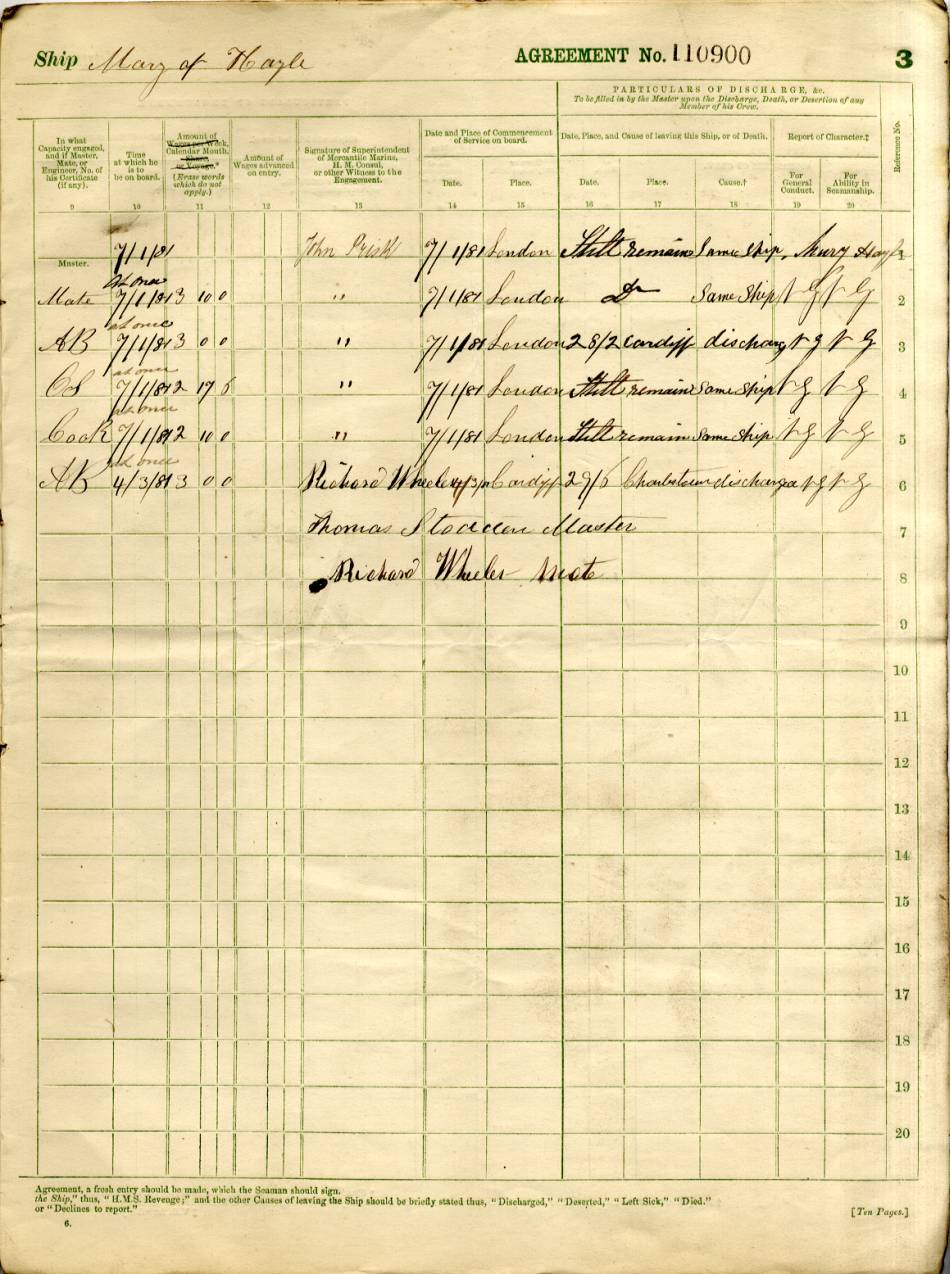 Ship Mary of Hayle AGREEMENT No. 110900 3
PARTICULARS OF DISCHARGE, &c.
To be filled in by the Master upon the Discharge, Death, or Desertion of any
Member of his Crew.
In what Capacity engaged, and if Master, Mate, or Engineer, No. of his Certificate (if any).
Time at which he is to be on board.
Amount of Wages per Week, Calendar Month, Share, or Voyage.* (Erase words which do not apply.)
Amount of Wages advanced on entry.
Signature of Superintendent of Mercantile Marine, H. M. Consul, or other Witness to the Engagement.
Date and Place of Commencement of Service on board.
Date, Place, and Cause of leaving this Ship, or of Death.
Report of Character.‡
Reference No.
Date. Place. Date. Place. Cause.† For General Conduct. For Ability in Seamanship.
9 10 11 12 13 14 15 16 17 18 19 20
Master. 7/1/81 John Prisk 7/1/81 London Still remain Same Ship, Mary Hayle 1
at once
Mate 7/1/81 3 10 0 " 7/1/81 London Do Same Ship V G V G 2
at once
AB 7/1/81 3 0 0 " 7/1/81 London 28/2 Cardiff discharg V G V G 3
at once
OS 7/1/81 2 17 6 " 7/1/81 London Still remain Same Ship V G V G 4
at once
Cook 7/1/81 2 10 0 " 7/1/81 London Still remain Same Ship V G V G 5
at once
AB 4/3/81 3 0 0 Richard Wheeler 4/3/81 Cardiff 29/6 discharged V G V G 6
Thomas Stodden Master 7
Richard Wheeler Mate 8
9
10
11
12
13
14
15
16
17
18
19
20
Agreement, a fresh entry should be made, which the Seaman should sign.
the Ship," thus, "H.M.S. Revenge;" and the other Causes of leaving the Ship should be briefly stated thus, "Discharged," "Deserted," "Left Sick," "Died."
or "Declines to report."
6. [Ten Pages.]